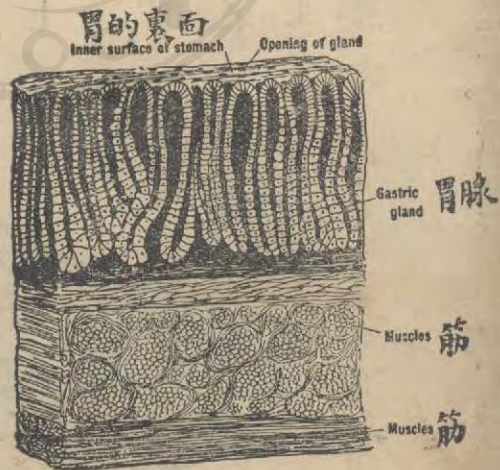 胃的裏面
Inner surface of stomach
Opening of gland
Gastric
gland
胃腺
Muscles
筋
Muscles
筋